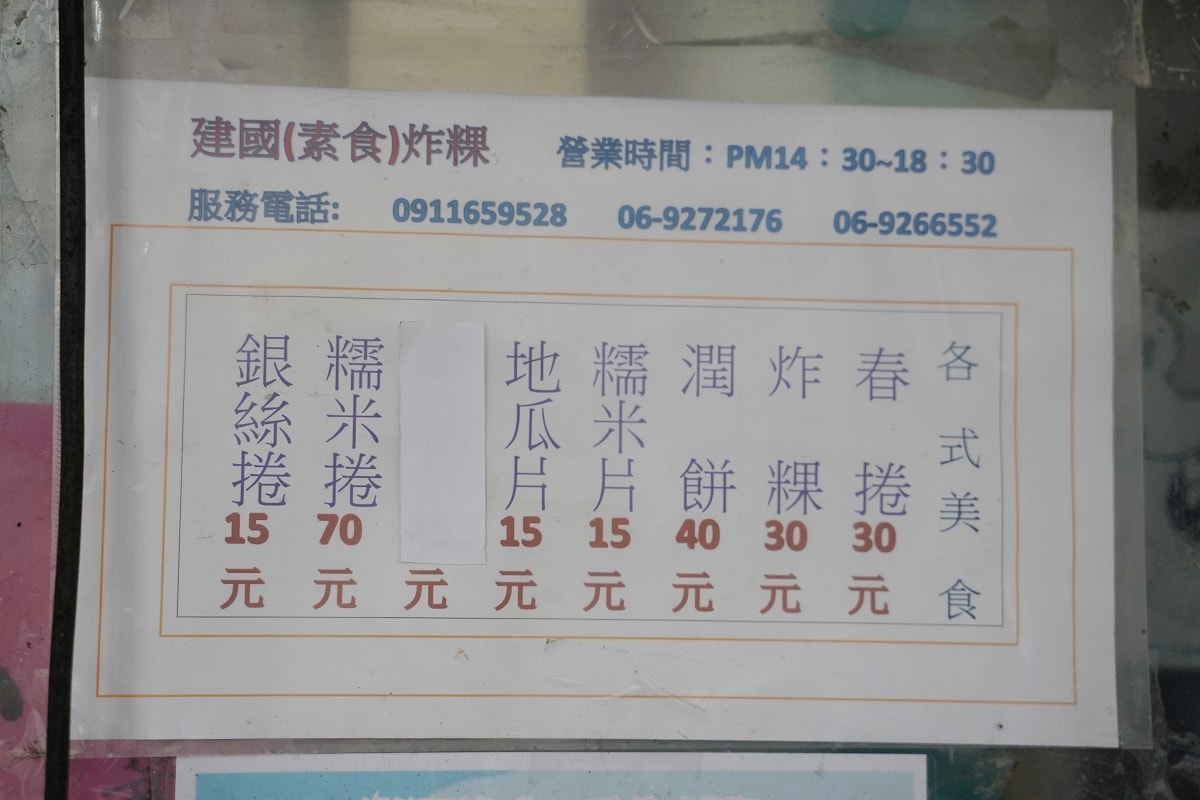 建國(素食)炸粿
營業時間：PM14：30~18：30
服務電話: 0911659528 06-9272176 06-9266552
各式美食
春捲30元
炸粿30元
潤餅40元
糯米片15元
地瓜片15元
元
糯米捲70元
銀絲捲15元